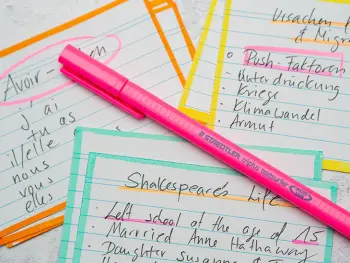 Avoir -
j'ai
tu as
il/elle
nous
vous
elles
Ursachen
& Migr
Push-Faktoren
Unterdrückung
Kriege
Klimawandel
Armut
STAEDTLER triplus
Shakespeare's Life
Left school at the age of 15
Married Anne Hathaway
Daughter Susanne &